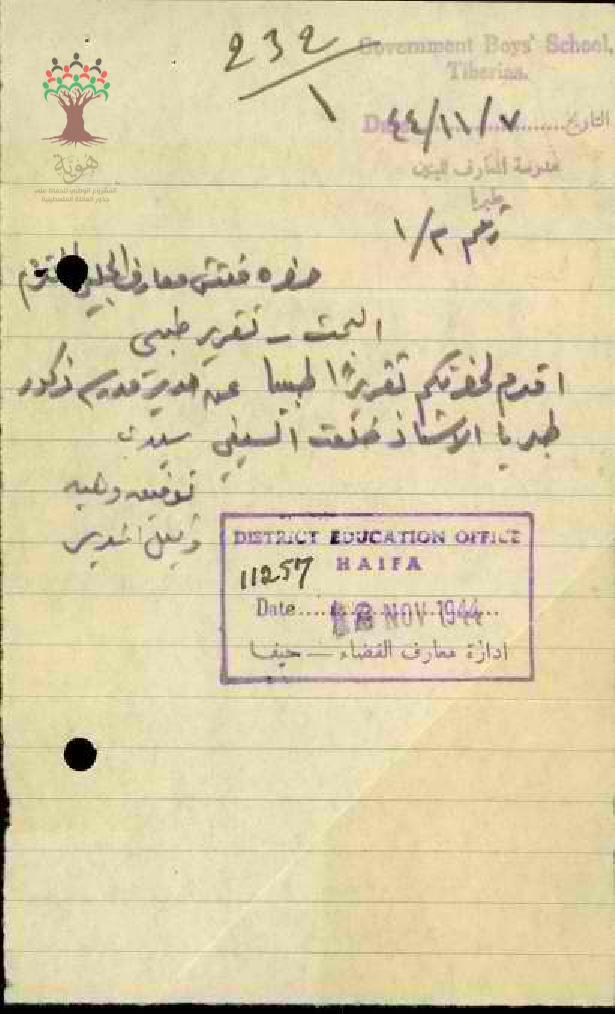 232
١
Government Boys' School,
Tiberias.
Date 44/11/٧ التاريخ
مدرسة المعارف للبنين
طبريا
رقم ١/٣
هوية
المشروع الوطني للحفاظ على
جذور العائلة الفلسطينية
حضرة مفتش معارف الجليل المحترم
البحث - تقرير طبي
اقدم لحضرتكم تقريرًا طبيا عن مدرسة ذكور
طبريا الاستاذ طلعت السيفي
توفيق
وكيل المدير
DISTRICT EDUCATION OFFICE
HAIFA
11257
Date.... NOV 1944
ادارة معارف القضاء — حيفا